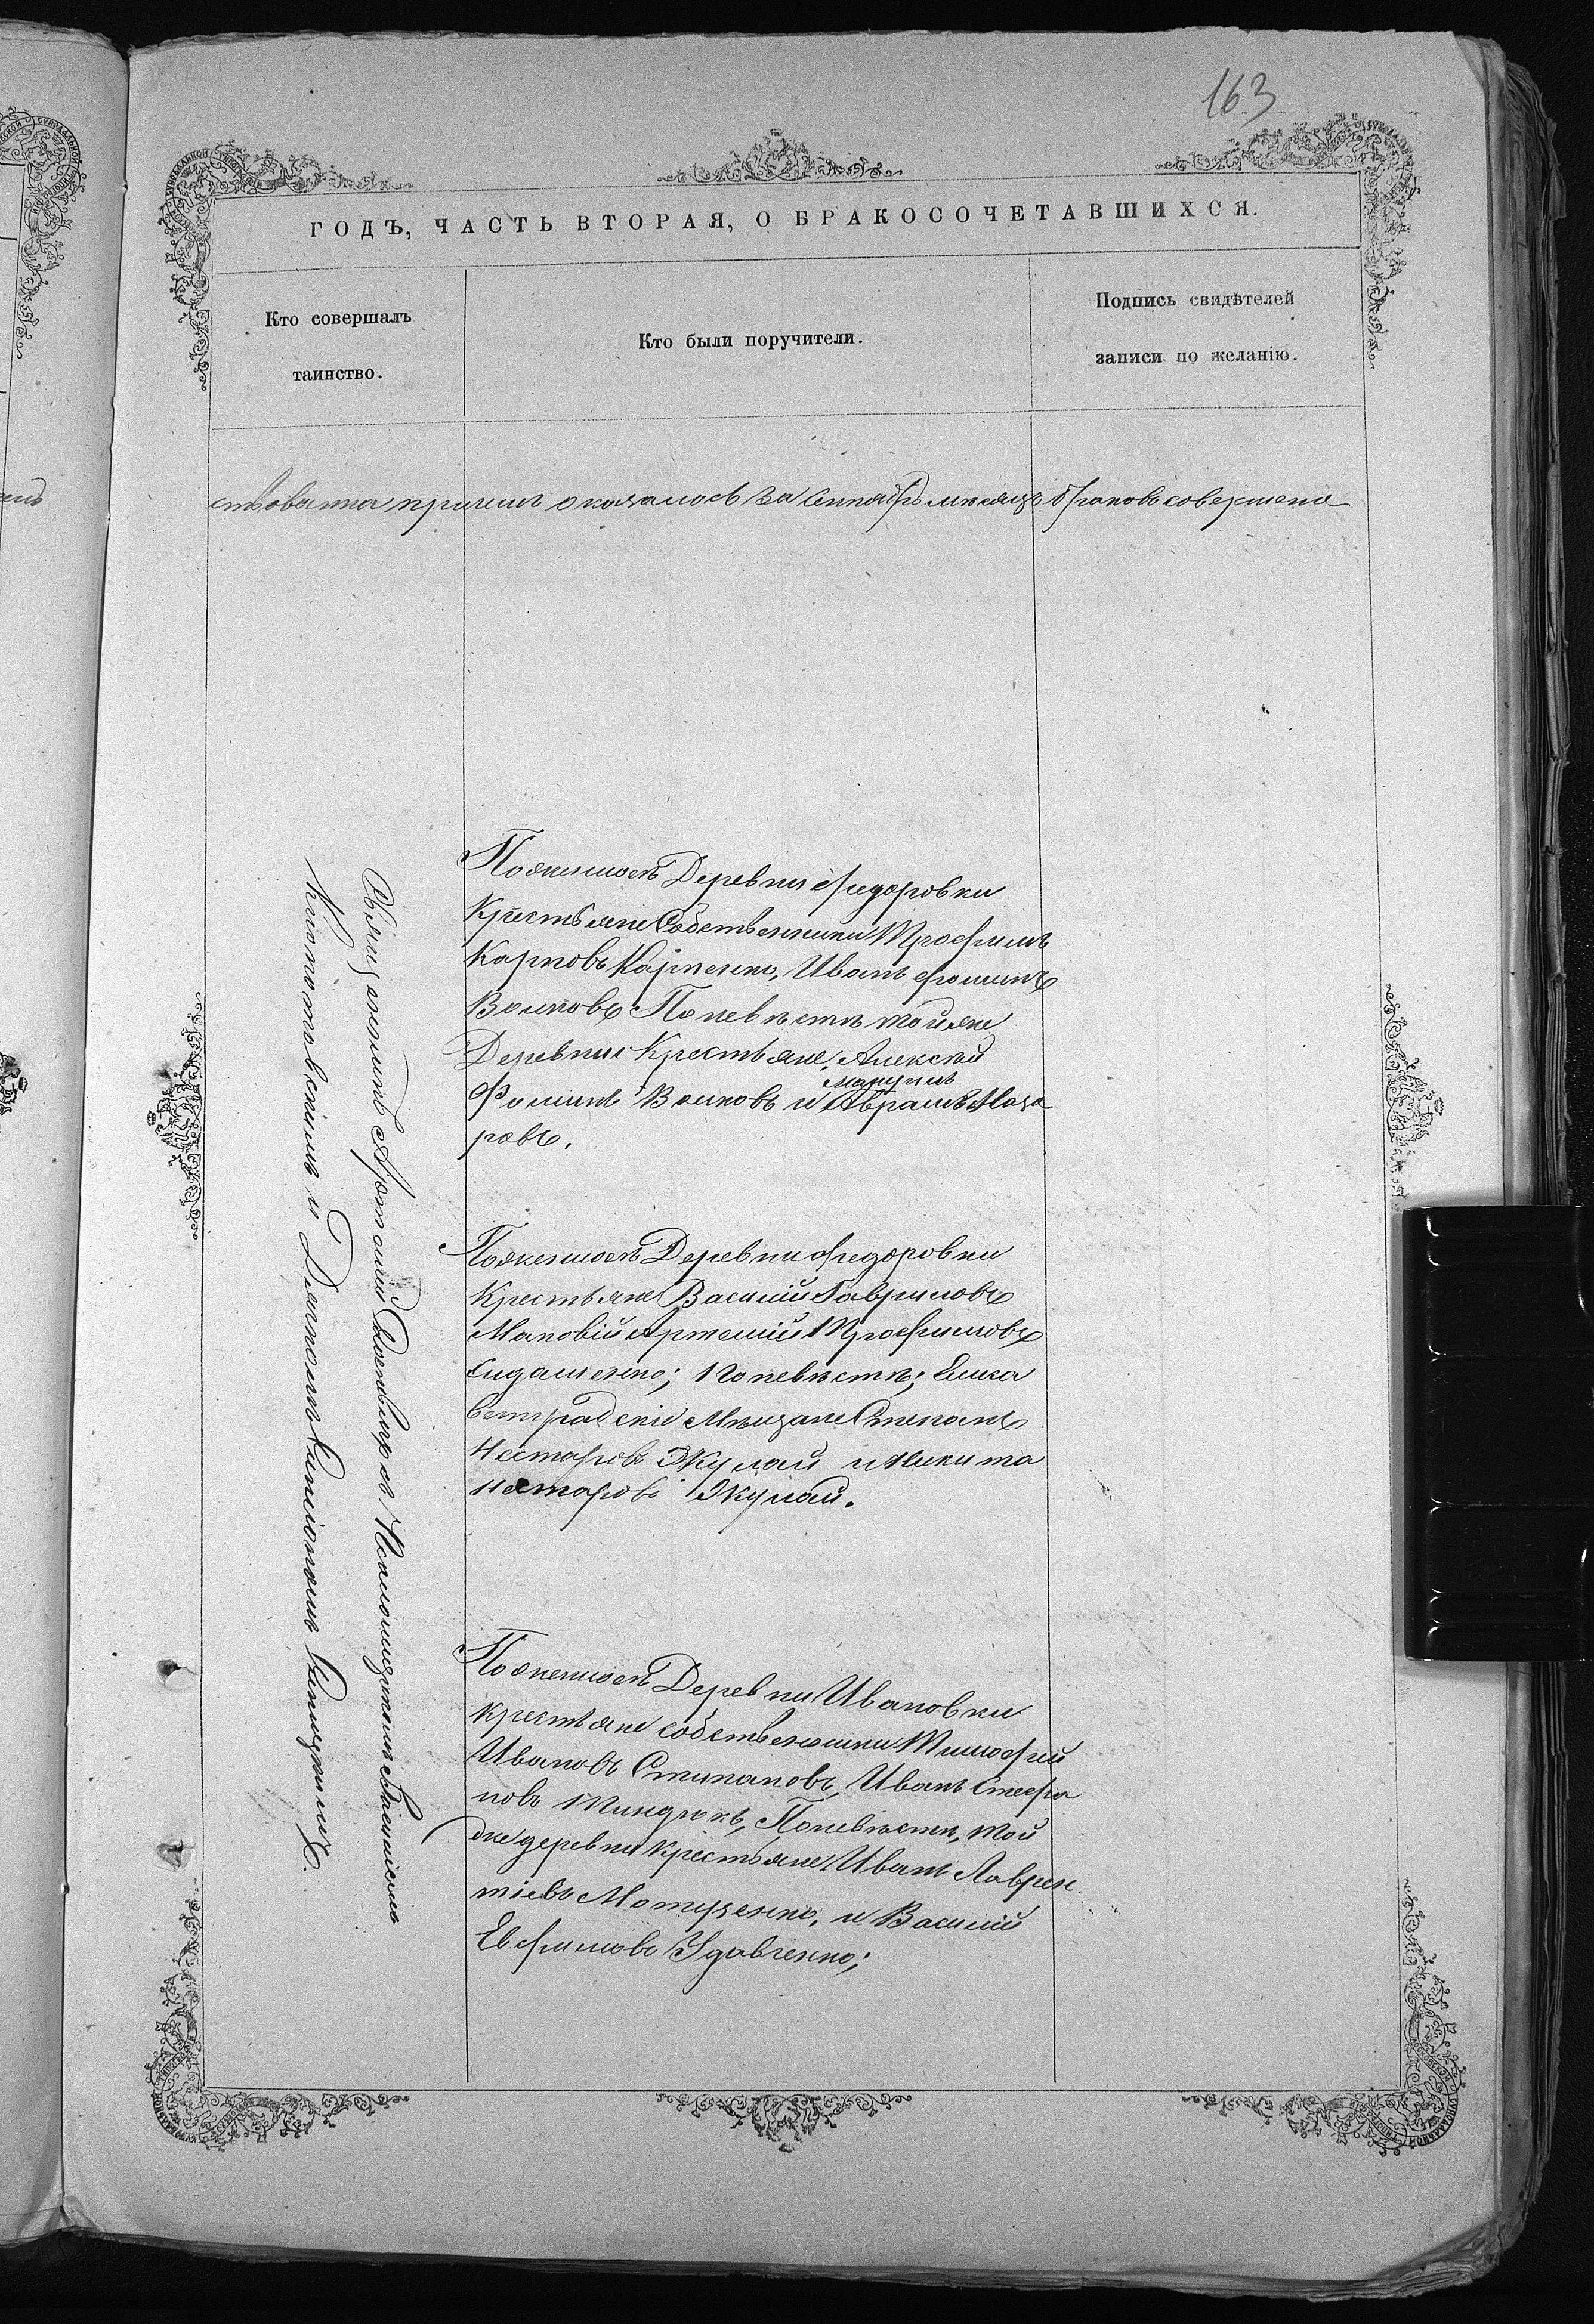 163
ГОДЪ, ЧАСТЬ ВТОРАЯ, О БРАКОСОЧЕТАВШИХСЯ.
Кто совершалъ
таинство.
Кто были поручители.
Подпись свидѣтелей
записи по желанію.
оказалось за Сентябрь мѣсяцъ браковъ совершено
Священникъ Артемій Доенбергъ съ Псаломщикомъ Василіемъ
и Дьякомъ
По женихѣ Деревни Федоровки
Крестьяне Собственники Трофимъ
Карповъ Карпенко, Иванъ Фоминъ
Волковъ По невѣстѣ той же
Деревни Крестьяне, Алексѣй
Фоминъ Волковъ и Аврамъ Маза
ровъ.
По женихѣ Деревни Федоровки
Крестьяне Василій Гавриловъ
Маковій Артемій Трофимовъ
Сидашенко; По невѣстѣ; Елиса
ветградскіе Мѣщане Стефанъ
Несторовъ Жулай и Никита
Несторовъ Жулай.
По женихѣ Деревни Ивановки
крестьяне собственники Тимофій
Ивановъ Стипановъ, Иванъ Стефа
новъ Тиндюкъ, По невѣстѣ, той
же деревни крестьяне Иванъ Лаврен
тіевъ Мотузенко, и Василій
Евфимовъ Удовченко;